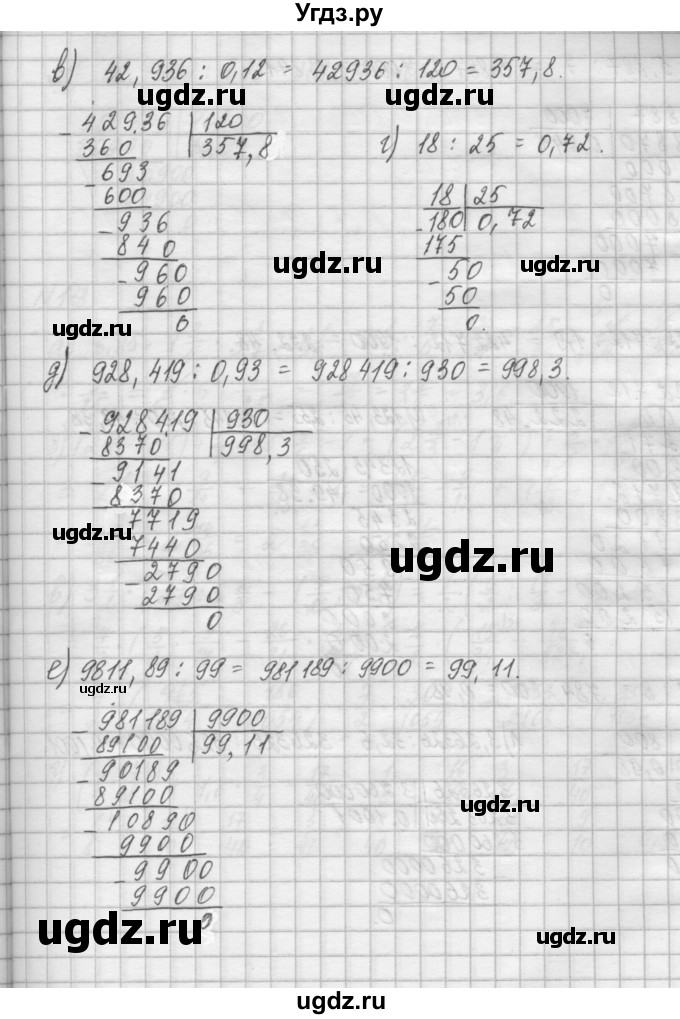 Угдз.ру
в) 42,936 : 0,12 = 42936 : 120 = 357,8.
ugdz.ru ugdz.ru
- 42936 | 120
360 | 357,8
- 693
600
- 936
840
- 960
960
0
ugdz.ru
г) 18 : 25 = 0,72.
18 | 25
- 180 | 0,72
175
- 50
50
0.
ugdz.ru ugdz.ru
д) 928,419 : 0,93 = 928419 : 930 = 998,3.
- 928419 | 930
8370 | 998,3
- 9141
8370
- 7719
7440
- 2790
2790
0
ugdz.ru ugdz.ru
е) 9811,89 : 99 = 981189 : 9900 = 99,11.
ugdz.ru
- 981189 | 9900
89100 | 99,11
- 90189
89100
- 10890
9900
- 9900
9900
0
ugdz.ru
ugdz.ru ugdz.ru
ugdz.ru